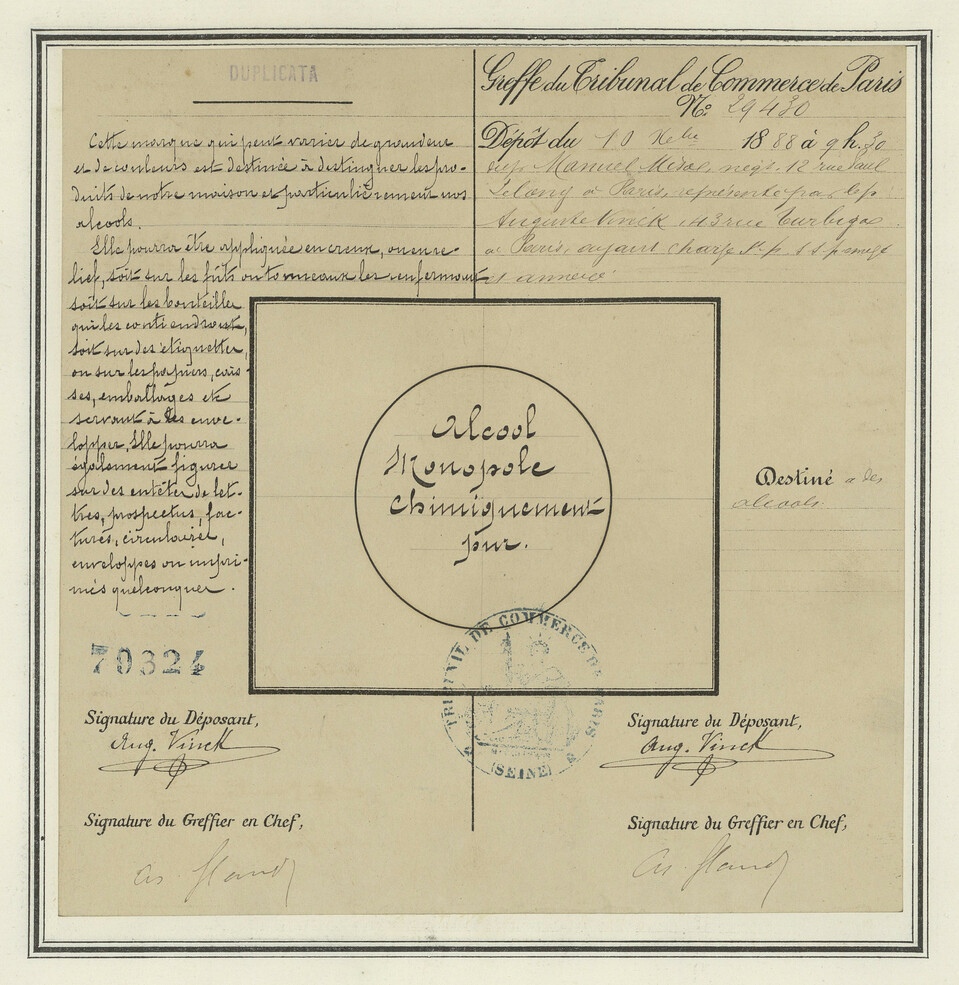 DUPLICATA
Cette marque qui peut varier de grandeur
et de couleurs est destinée à distinguer les pro-
duits de notre maison et particulièrement nos
alcools.
Elle pourra être appliquée en creux, ou en re-
lief, soit sur les fûts ou tonneaux les renfermant
soit sur les bouteilles
qui les contiendront,
soit sur des étiquettes,
ou sur les papiers, cais-
ses, emballages etc
servant à les enve-
lopper. Elle pourra
également figurer
sur des entêtes de let-
tres, prospectus, fac-
tures, circulaires,
enveloppes ou impri-
més quelconques.
70324
Signature du Déposant,
Aug. Vinck
Signature du Greffier en Chef,
Greffe du Tribunal de Commerce de Paris
No. 29430
Dépôt du 10 Xbre 1888 à 9 h. 30
Manuel Misa, négt. 12 rue Paul
Lelong à Paris, représenté par le sr
Auguste Vinck, 43 rue Turbigo
à Paris, ayant charge
et annexé
Alcool
Monopole
Chimiquement
pur.
Destiné a des
alcools.
TRIBUNAL DE COMMERCE DE PARIS
(SEINE)
Signature du Déposant,
Aug. Vinck
Signature du Greffier en Chef,